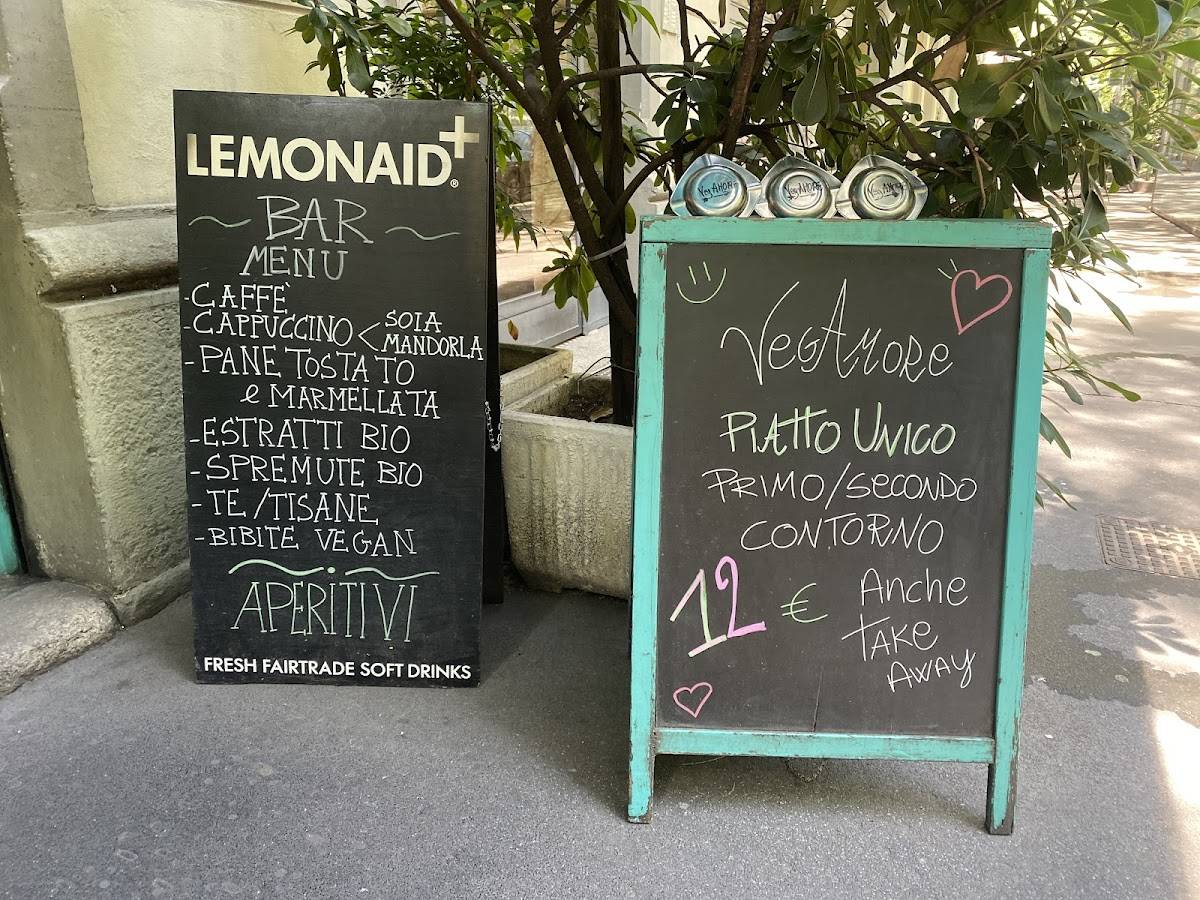 LEMONAID+®
BAR
MENU
-CAFFÈ
-CAPPUCCINO < SOIA
MANDORLA
-PANE TOSTATO
e MARMELLATA
-ESTRATTI BIO
-SPREMUTE BIO
-TE/TISANE
-BIBITE VEGAN
APERITIVI
FRESH FAIRTRADE SOFT DRINKS
VEGAMORE
VEGAMORE
VEGAMORE
VegAMORe
PIATTO UNICO
PRIMO/SeCONDO
CONTORNO
12 €
Anche
TAKE
AWAY